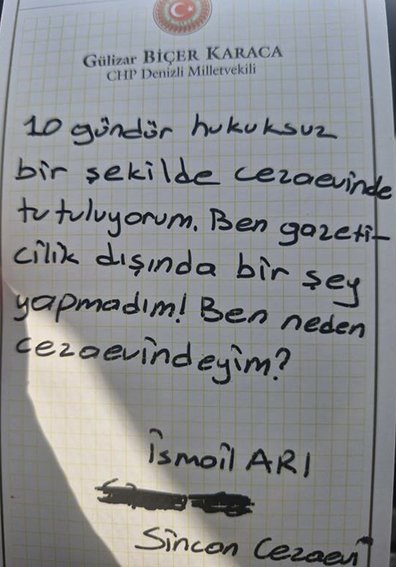 Gülizar BİÇER KARACA
CHP Denizli Milletvekili
10 gündür hukuksuz
bir şekilde cezaevinde
tutuluyorum. Ben gazeti-
cilik dışında bir şey
yapmadım! Ben neden
cezaevindeyim?
İsmail ARI
Sincan Cezaevi